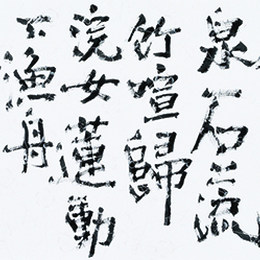 泉石流
竹喧歸
浣女蓮動
下漁舟